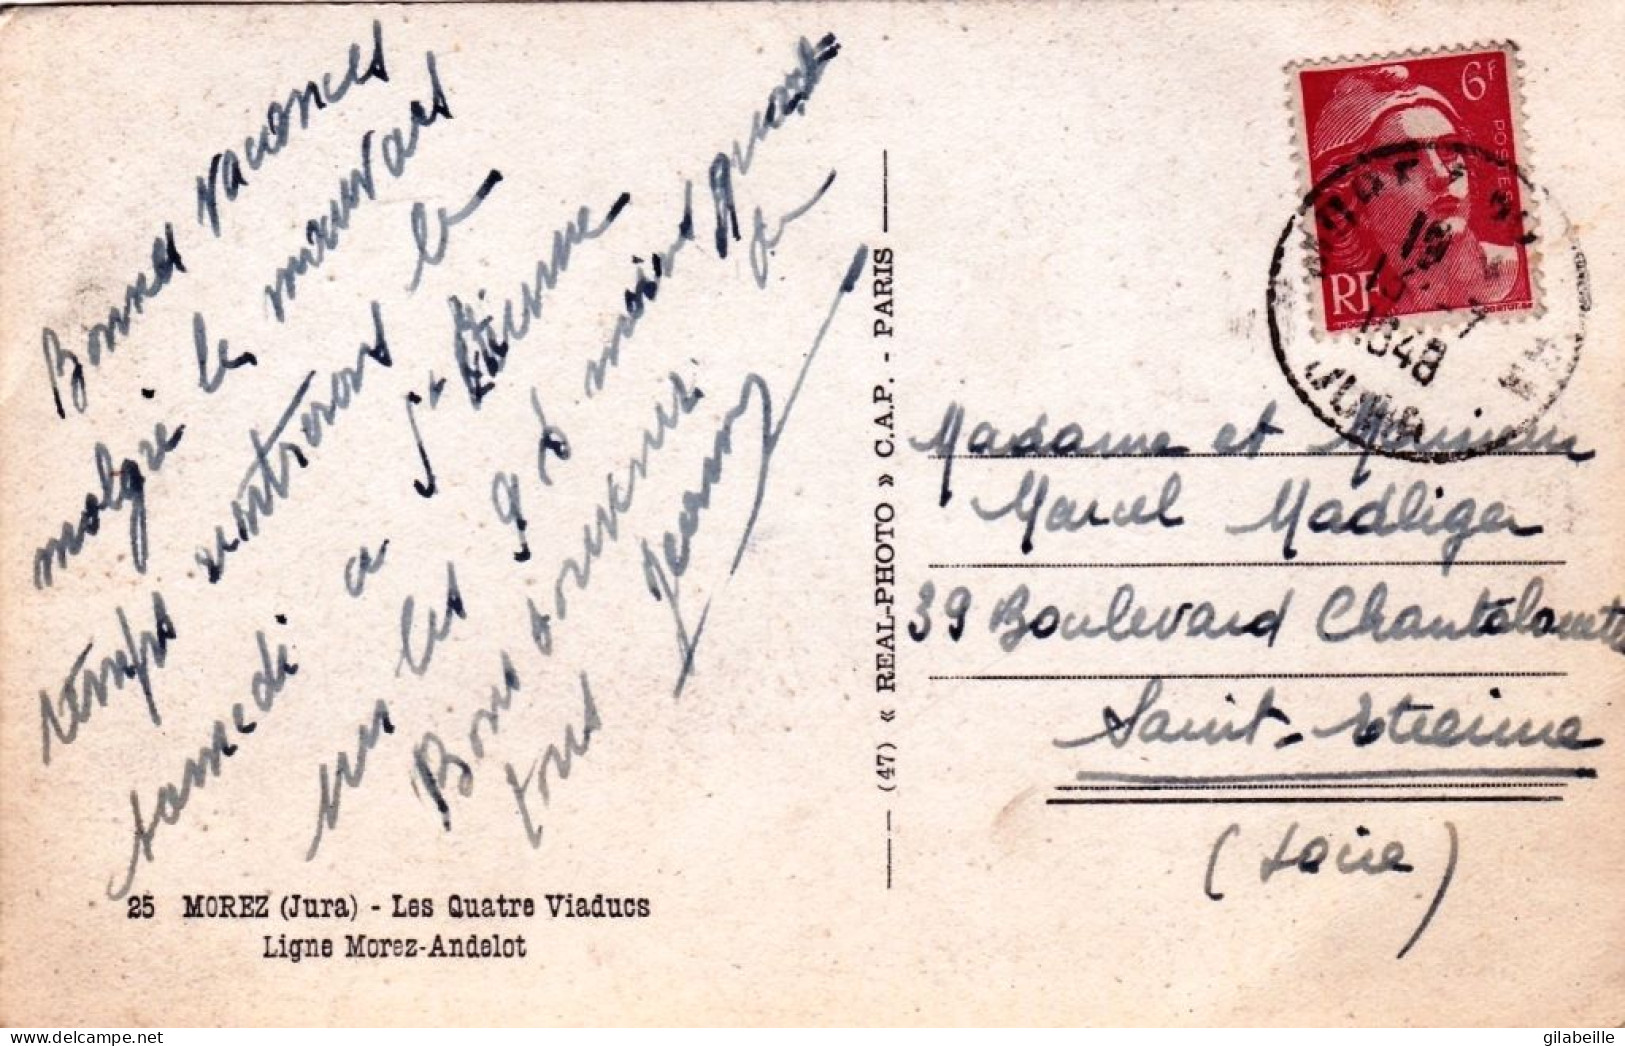 Bonnes vacances
malgré le mauvais
temps rentrerons le
samedi a St Etienne
sur les 9 h moins quart
Bons souvenir a
tous Jeanne
25 MOREZ (Jura) - Les Quatre Viaducs
Ligne Morez-Andelot
(47) « REAL-PHOTO » C.A.P. - PARIS
6F
POSTES
RF
19
1948
JURA
Madame et Monsieur
Marcel Madliger
39 Boulevard Chantelouette
Saint-Etienne
(Loire)
delcampe.net
gilabeille